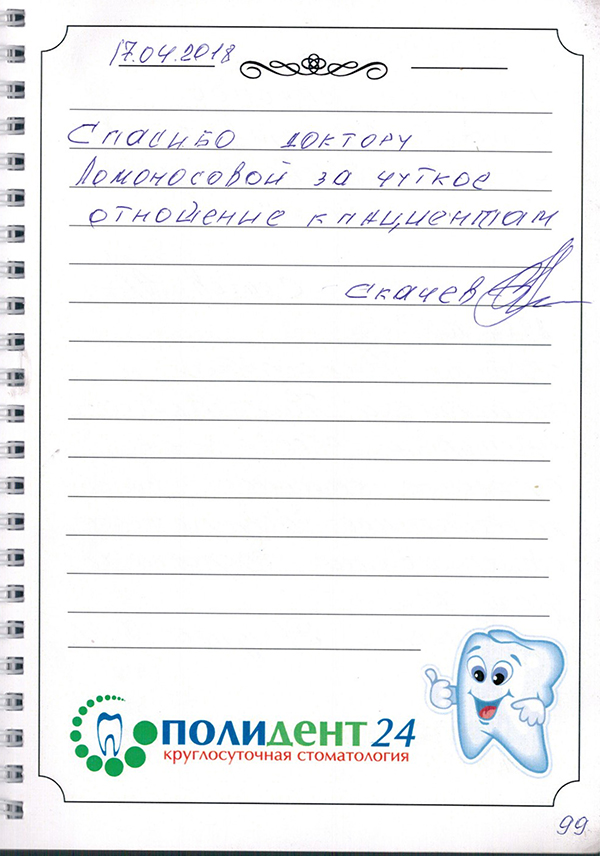 17.04.2018
Спасибо доктору
Ломоносовой за чуткое
отношение к пациентам
Скачев
ПОЛИДЕНТ 24
круглосуточная стоматология
99